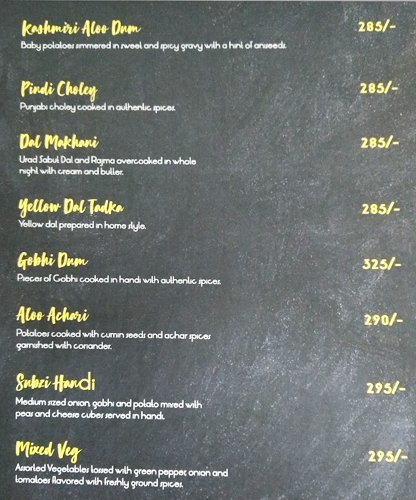 Kashmiri Aloo Dum 285/-
Baby potatoes simmered in sweet and spicy gravy with a hint of aniseeds.
Pindi Choley 285/-
Punjabi choley cooked in authentic spices.
Dal Makhani 285/-
Urad Sabut Dal and Rajma overcooked in whole
night with cream and butter.
Yellow Dal Tadka 285/-
Yellow dal prepared in home style.
Gobhi Dum 325/-
Pieces of Gobhi cooked in handi with authentic spices.
Aloo Achari 290/-
Potatoes cooked with cumin seeds and achar spices
garnished with coriander.
Subzi Handi 295/-
Medium sized onion, gobhi and potato mixed with
peas and cheese cubes served in handi.
Mixed Veg 295/-
Assorted Vegetables tossed with green pepper, onion and
tomatoes flavored with freshly ground spices.